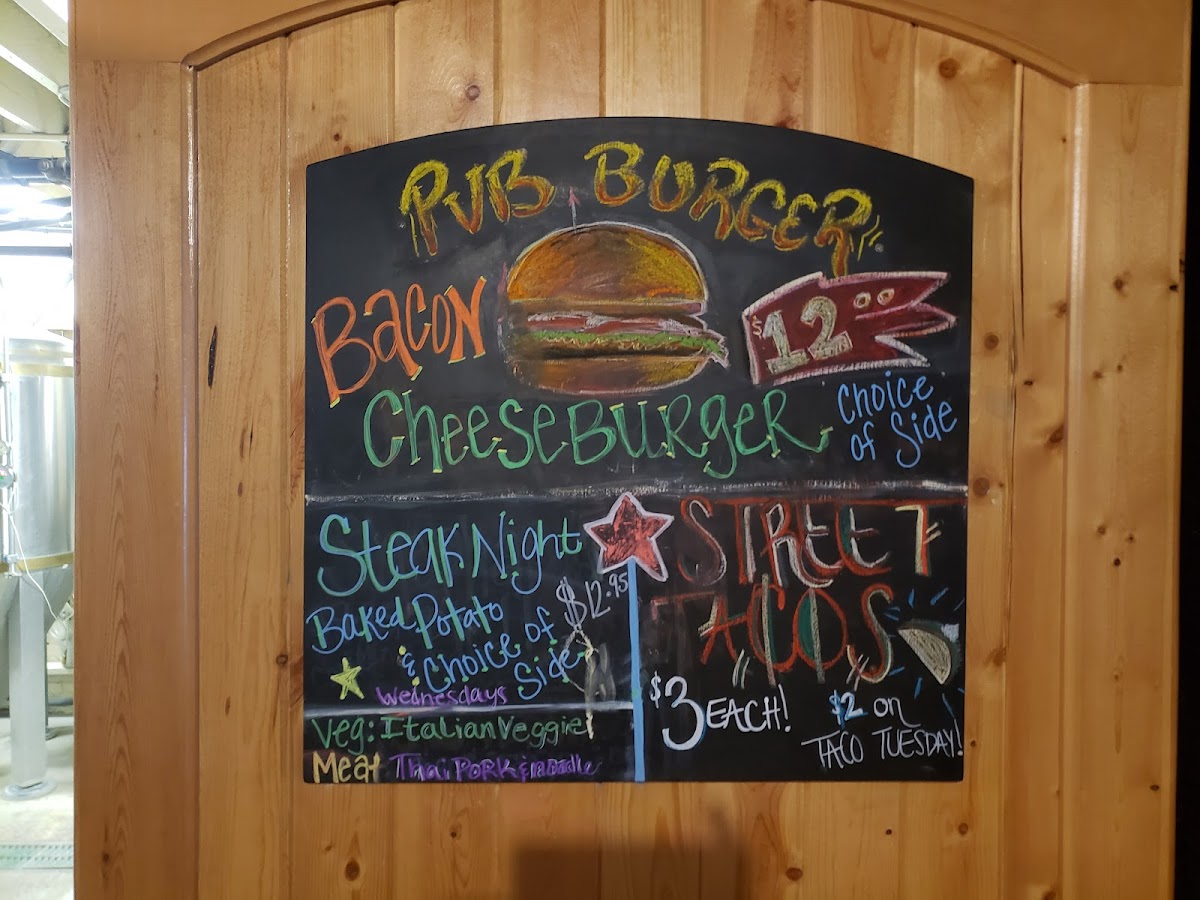 PUB BURGER
BACON
$12.00
CHEESEBURGER
Choice
of Side
Steak Night
$12.95
Baked Potato
& Choice of
Side
Wednesdays
Veg: Italian Veggie
Meat Thai Pork &
STREET
TACOS
$3 EACH!
$2 on
TACO TUESDAY!